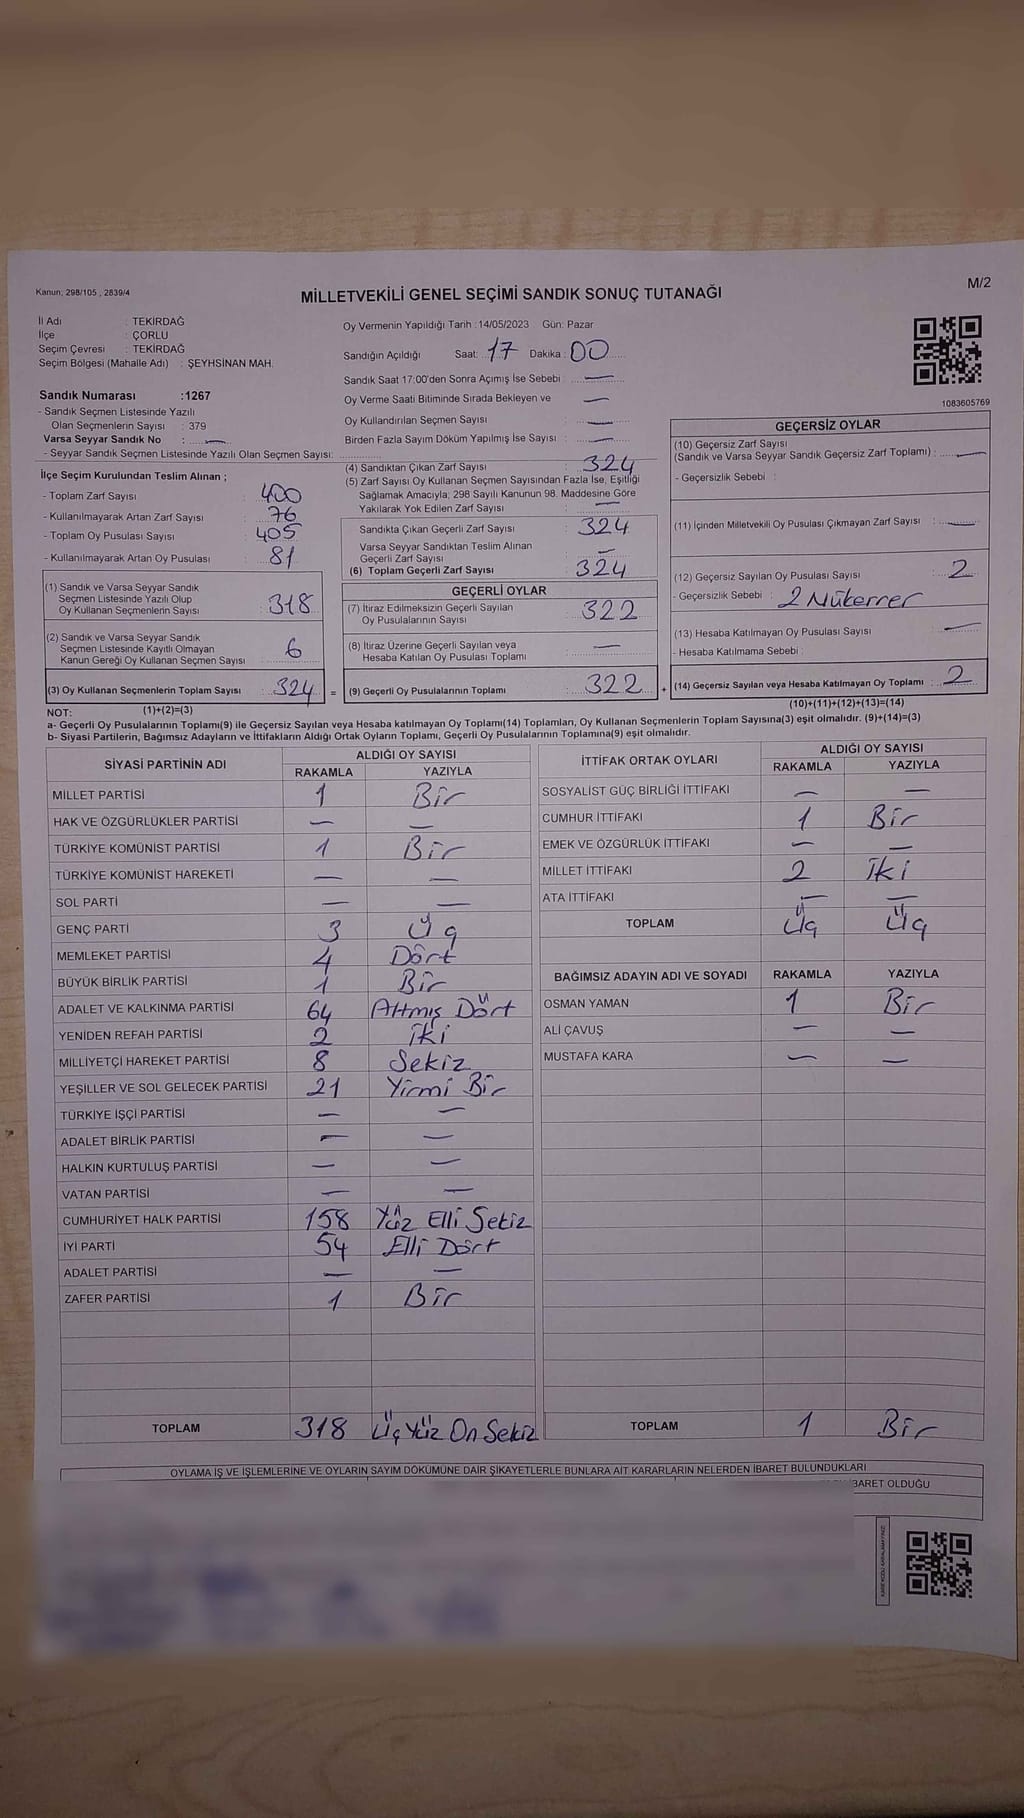 Kanun, 298/105 , 2839/4
M/2
MİLLETVEKİLİ GENEL SEÇİMİ SANDIK SONUÇ TUTANAĞI
İl Adı : TEKİRDAĞ
İlçe : ÇORLU
Seçim Çevresi : TEKİRDAĞ
Seçim Bölgesi (Mahalle Adı) : ŞEYHSİNAN MAH.
Sandık Numarası :1267
- Sandık Seçmen Listesinde Yazılı
Olan Seçmenlerin Sayısı : 379
Varsa Seyyar Sandık No : —
- Seyyar Sandık Seçmen Listesinde Yazılı Olan Seçmen Sayısı:
İlçe Seçim Kurulundan Teslim Alınan ;
- Toplam Zarf Sayısı : 400
- Kullanılmayarak Artan Zarf Sayısı : 76
- Toplam Oy Pusulası Sayısı : 405
- Kullanılmayarak Artan Oy Pusulası : 81
(1) Sandık ve Varsa Seyyar Sandık
Seçmen Listesinde Yazılı Olup
Oy Kullanan Seçmenlerin Sayısı : 318
(2) Sandık ve Varsa Seyyar Sandık
Seçmen Listesinde Kayıtlı Olmayan
Kanun Gereği Oy Kullanan Seçmen Sayısı : 6
(3) Oy Kullanan Seçmenlerin Toplam Sayısı : 324 =
Oy Vermenin Yapıldığı Tarih :14/05/2023 Gün: Pazar
Sandığın Açıldığı Saat: 17 Dakika : 00
Sandık Saat 17:00'den Sonra Açımış İse Sebebi : —
Oy Verme Saati Bitiminde Sırada Bekleyen ve —
Oy Kullandırılan Seçmen Sayısı : —
Birden Fazla Sayım Döküm Yapılmış İse Sayısı : —
(4) Sandıktan Çıkan Zarf Sayısı : 324
(5) Zarf Sayısı Oy Kullanan Seçmen Sayısından Fazla İse, Eşitliği
Sağlamak Amacıyla; 298 Sayılı Kanunun 98. Maddesine Göre
Yakılarak Yok Edilen Zarf Sayısı : —
Sandıkta Çıkan Geçerli Zarf Sayısı : 324
Varsa Seyyar Sandıktan Teslim Alınan
Geçerli Zarf Sayısı : —
(6) Toplam Geçerli Zarf Sayısı : 324
GEÇERLİ OYLAR
(7) İtiraz Edilmeksizin Geçerli Sayılan
Oy Pusulalarının Sayısı : 322
(8) İtiraz Üzerine Geçerli Sayılan veya
Hesaba Katılan Oy Pusulası Toplamı : —
(9) Geçerli Oy Pusulalarının Toplamı : 322 +
1083605769
GEÇERSİZ OYLAR
(10) Geçersiz Zarf Sayısı
(Sandık ve Varsa Seyyar Sandık Geçersiz Zarf Toplamı) : —
- Geçersizlik Sebebi :
(11) İçinden Milletvekili Oy Pusulası Çıkmayan Zarf Sayısı : —
(12) Geçersiz Sayılan Oy Pusulası Sayısı : 2
- Geçersizlik Sebebi : 2 Mükerrer
(13) Hesaba Katılmayan Oy Pusulası Sayısı : —
- Hesaba Katılmama Sebebi :
(14) Geçersiz Sayılan veya Hesaba Katılmayan Oy Toplamı : 2
NOT: (1)+(2)=(3)
(10)+(11)+(12)+(13)=(14)
a- Geçerli Oy Pusulalarının Toplamı(9) ile Geçersiz Sayılan veya Hesaba katılmayan Oy Toplamı(14) Toplamları, Oy Kullanan Seçmenlerin Toplam Sayısına(3) eşit olmalıdır. (9)+(14)=(3)
b- Siyasi Partilerin, Bağımsız Adayların ve İttifakların Aldığı Ortak Oyların Toplamı, Geçerli Oy Pusulalarının Toplamına(9) eşit olmalıdır.
SİYASİ PARTİNİN ADI ALDIĞI OY SAYISI
RAKAMLA YAZIYLA
MİLLET PARTİSİ 1 Bir
HAK VE ÖZGÜRLÜKLER PARTİSİ — —
TÜRKİYE KOMÜNİST PARTİSİ 1 Bir
TÜRKİYE KOMÜNİST HAREKETİ — —
SOL PARTİ — —
GENÇ PARTİ 3 Üç
MEMLEKET PARTİSİ 4 Dört
BÜYÜK BİRLİK PARTİSİ 1 Bir
ADALET VE KALKINMA PARTİSİ 64 Altmış Dört
YENİDEN REFAH PARTİSİ 2 İki
MİLLİYETÇİ HAREKET PARTİSİ 8 Sekiz
YEŞİLLER VE SOL GELECEK PARTİSİ 21 Yirmi Bir
TÜRKİYE İŞÇİ PARTİSİ — —
ADALET BİRLİK PARTİSİ — —
HALKIN KURTULUŞ PARTİSİ — —
VATAN PARTİSİ — —
CUMHURİYET HALK PARTİSİ 158 Yüz Elli Sekiz
İYİ PARTİ 54 Elli Dört
ADALET PARTİSİ — —
ZAFER PARTİSİ 1 Bir
TOPLAM 318 Üç Yüz On Sekiz
İTTİFAK ORTAK OYLARI ALDIĞI OY SAYISI
RAKAMLA YAZIYLA
SOSYALİST GÜÇ BİRLİĞİ İTTİFAKI — —
CUMHUR İTTİFAKI 1 Bir
EMEK VE ÖZGÜRLÜK İTTİFAKI — —
MİLLET İTTİFAKI 2 İki
ATA İTTİFAKI — —
TOPLAM Üç Üç
BAĞIMSIZ ADAYIN ADI VE SOYADI RAKAMLA YAZIYLA
OSMAN YAMAN 1 Bir
ALİ ÇAVUŞ — —
MUSTAFA KARA — —
TOPLAM 1 Bir
OYLAMA İŞ VE İŞLEMLERİNE VE OYLARIN SAYIM DÖKÜMÜNE DAİR ŞİKAYETLERLE BUNLARA AİT KARARLARIN NELERDEN İBARET BULUNDUKLARI
BARET OLDUĞU